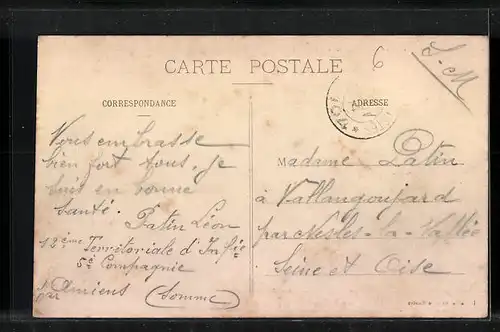 6
F.M
CARTE POSTALE
CORRESPONDANCE
ADRESSE
Vous embrasse
bien fort tous. Je
suis en bonne
santé.
Patin Léon
12ème Territoriale d'Infie
5e Compagnie
par Amiens (Somme)
Madame Patin
à Vallangoujard
par Nesles-la-Vallée
Seine et Oise